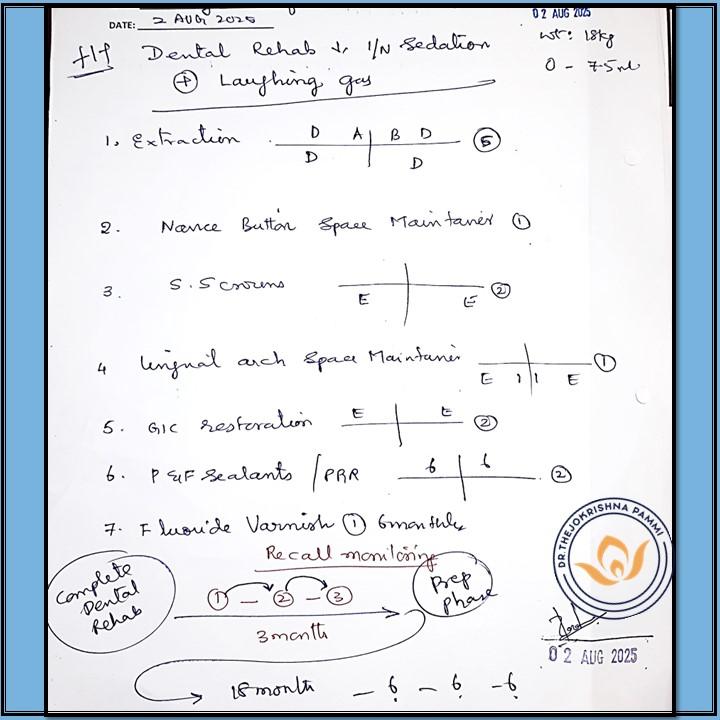 DATE: 2 AUG 2025
02 AUG 2025
wt: 18kg
Dental Rehab I/N sedation
+ Laughing gas
1. Extraction D A | B D 5
D | D
2. Nance Button Space Maintaner 1
3. S.S crowns E | E 2
4 lingual arch Space Maintaner 1
E 1 | 1 E
5. GIC restoration E | E 2
6. P & F sealants / PRR 6 | 6 2
7. Fluoride Varnish 1 6monthly
Recall monitoring
Complete Dental Rehab
1 – 2 – 3
3 month
Prep phase
18 month – 6 – 6 – 6
DR.THEJOKRISHNA PAMMI
02 AUG 2025